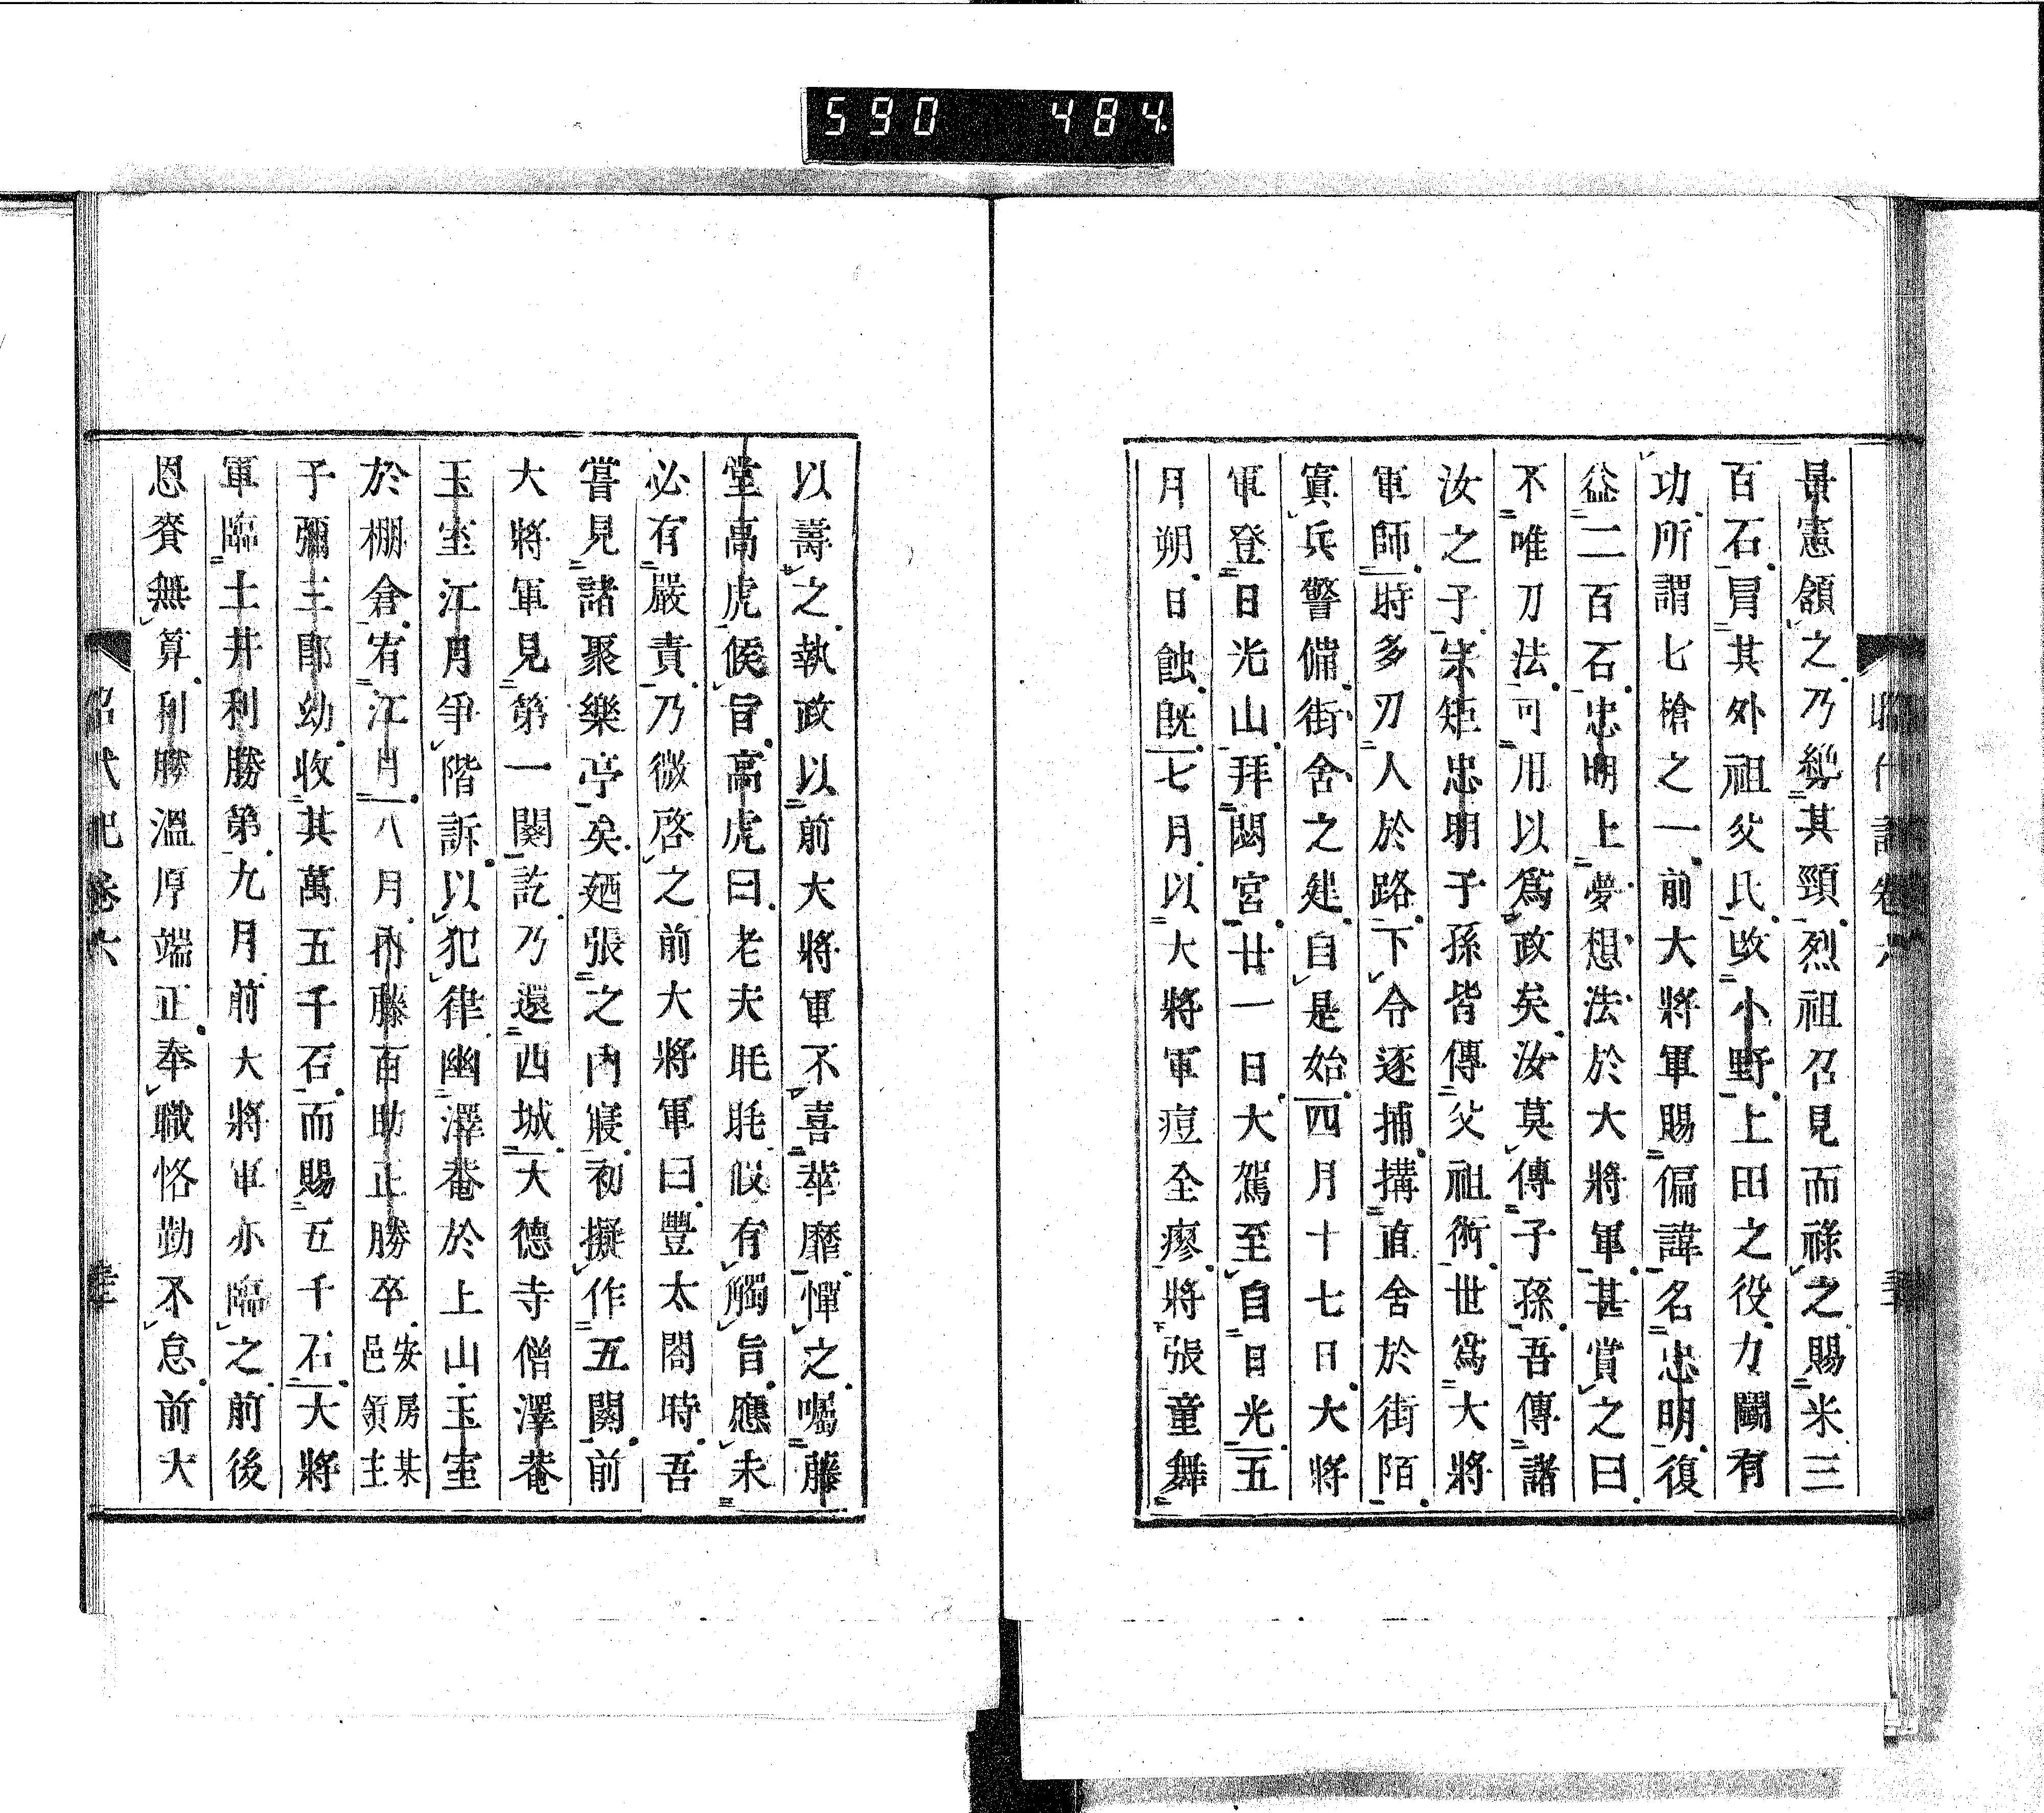 590 484
景憲頷之乃㔢其頸烈祖召見而祿之賜米三
百石冐其外祖父氏改小野上田之役力鬬有
功所謂七槍之一前大將軍賜偏諱名忠明復
益二百石忠明上夢想法於大將軍甚賞之曰
不唯刀法可用以爲政矣汝莫傳子孫吾傳諸
汝之子宗矩忠明子孫皆傳父祖術世爲大將
軍師時多刃人於路下令逐捕搆直舍於街陌
寘兵警備街舍之建自是始四月十七日大將
軍登日光山拜閟宮廿一日大駕至自日光五
月朔日蝕既七月以大將軍痘全瘳將張童舞
以壽之執政以前大將軍不喜華靡憚之囑藤
堂高虎候旨高虎曰老夫耄耄假有觸旨應未
必有嚴責乃微啓之前大將軍曰豐太閤時吾
嘗見諸聚樂亭矣廼張之內寢初擬作五闋前
大將軍見第一闋訖乃還西城大德寺僧澤菴
玉室江月爭階訴以犯律幽澤菴於上山玉室
於棚倉宥江月八月內藤百助正勝卒安房某邑領主
子彌三郎幼收其萬五千石而賜五千石大將
軍臨土井利勝第九月前大將軍亦臨之前後
恩賚無算利勝溫厚端正奉職恪勤不怠前大
昭代記卷六